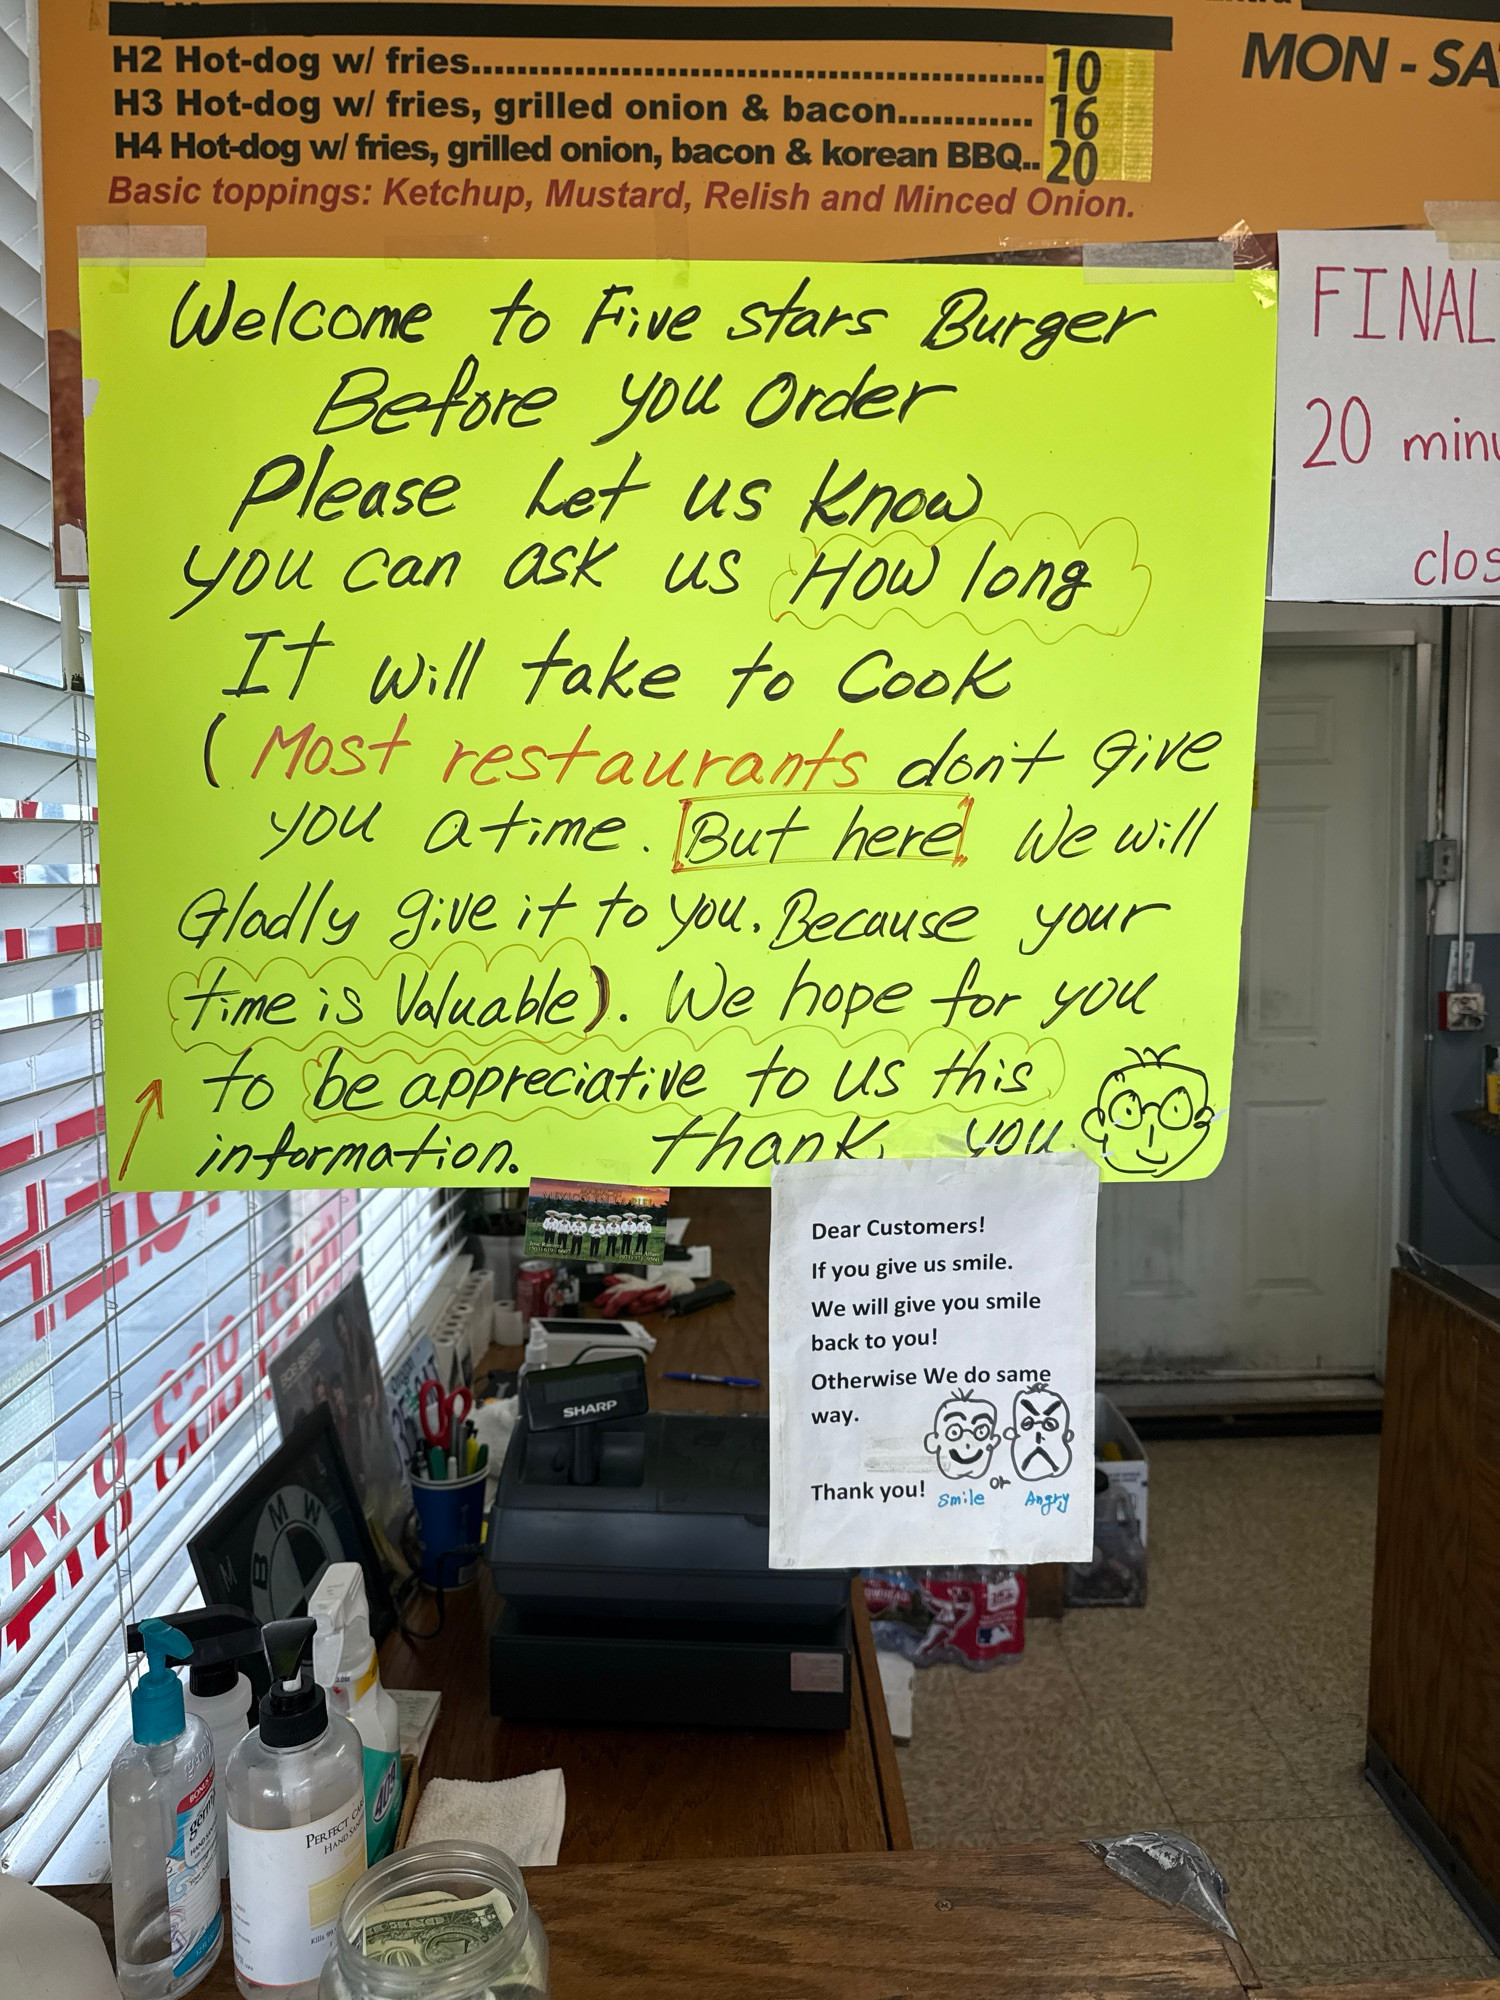 H2 Hot-dog w/ fries........................................................10
H3 Hot-dog w/ fries, grilled onion & bacon............16
H4 Hot-dog w/ fries, grilled onion, bacon & korean BBQ..20
Basic toppings: Ketchup, Mustard, Relish and Minced Onion.
MON - SA
Welcome to Five stars Burger
Before you Order
Please Let us Know
you can ask us How long
It will take to Cook
(Most restaurants don't Give
you a time. But here We will
Gladly give it to you. Because your
time is Valuable). We hope for you
to be appreciative to us this
information. thank you
FINAL
20 minu
clos
Dear Customers!
If you give us smile.
We will give you smile
back to you!
Otherwise We do same
way.
Thank you!
smile or Angry
SHARP
B M W
M
PERFECT
HAND
409